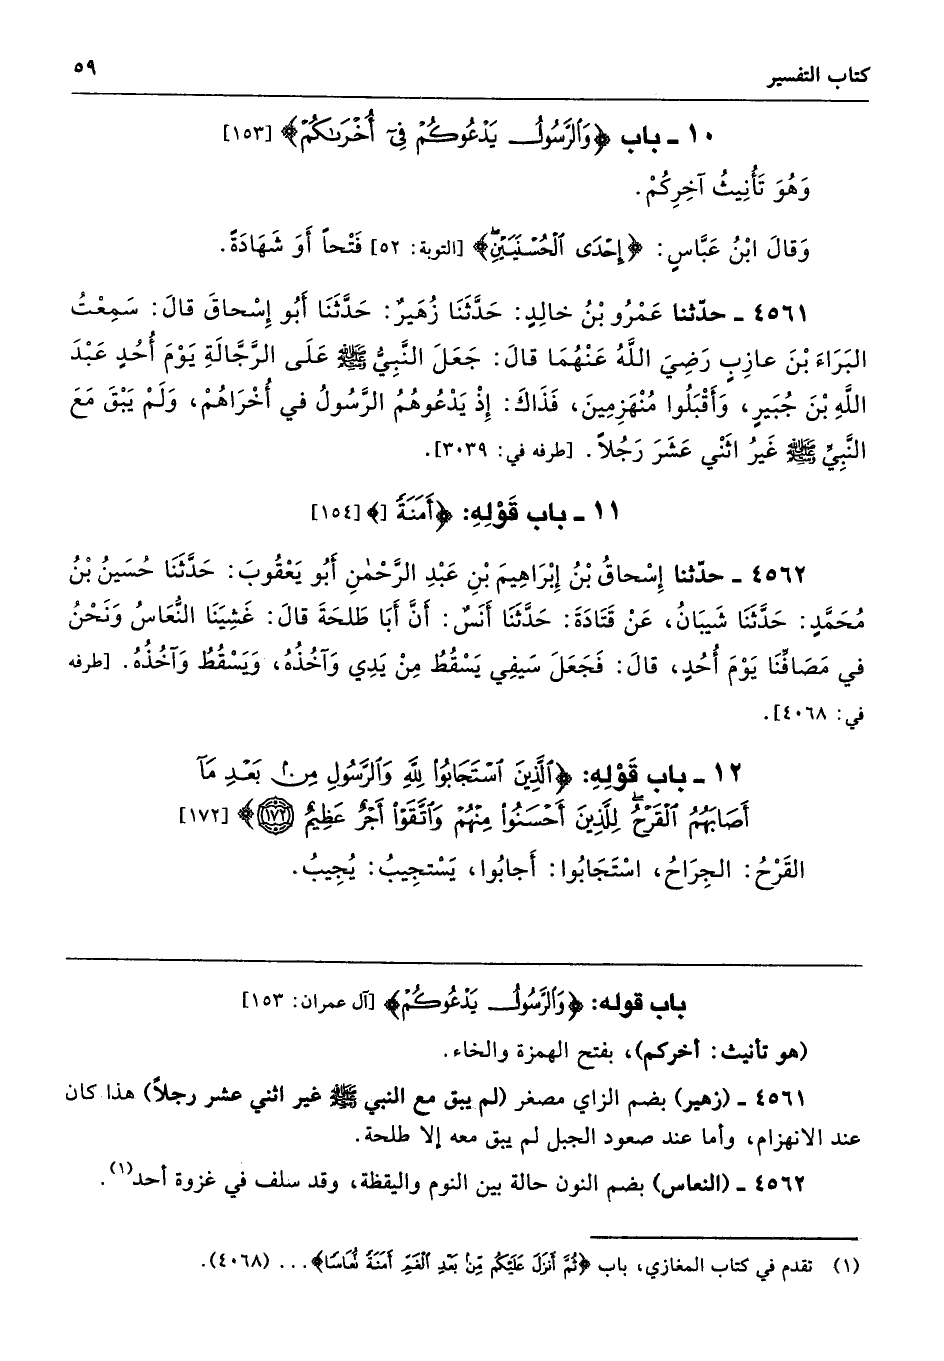 كتاب التفسير ٥٩
١٠ ـ باب ﴿وَٱلرَّسُولُ يَدْعُوكُمْ فِىٓ أُخْرَىٰكُمْ﴾ [١٥٣]
وَهُوَ تَأْنِيثُ آخِرِكُمْ.
وَقالَ ابْنُ عَبَّاسٍ: ﴿إِحْدَى ٱلْحُسْنَيَيْنِۖ﴾ [التوبة: ٥٢] فَتْحاً أَوْ شَهَادَةً.
٤٥٦١ ـ حدّثنا عَمْرُو بْنُ خالِدٍ: حَدَّثَنَا زُهَيرٌ: حَدَّثَنَا أَبُو إِسْحاقَ قالَ: سَمِعْتُ
البَرَاءَ بْنَ عازِبٍ رَضِيَ اللَّهُ عَنْهُمَا قالَ: جَعَلَ النَّبِيُّ ﷺ عَلَى الرَّجَّالَةِ يَوْمَ أُحُدٍ عَبْدَ
اللَّهِ بْنَ جُبَيرٍ، وَأَقْبَلُوا مُنْهَزِمِينَ، فَذَاكَ: إِذْ يَدْعُوهُمُ الرَّسُولُ في أُخْرَاهُمْ، وَلَمْ يَبْقَ مَعَ
النَّبِيِّ ﷺ غَيرُ اثْنَي عَشَرَ رَجُلاً. [طرفه في: ٣٠٣٩].
١١ ـ باب قَوْلِهِ: ﴿أَمَنَةً [﴾] [١٥٤]
٤٥٦٢ ـ حدّثنا إِسْحاقُ بْنُ إِبْرَاهِيمَ بْنِ عَبْدِ الرَّحْمٰنِ أَبُو يَعْقُوبَ: حَدَّثَنَا حُسَينُ بْنُ
مُحَمَّدٍ: حَدَّثَنَا شَيبَانُ، عَنْ قَتَادَةَ: حَدَّثَنَا أَنَسٌ: أَنَّ أَبَا طَلحَةَ قالَ: غَشِيَنَا النُّعَاسُ وَنَحْنُ
في مَصَافِّنَا يَوْمَ أُحُدٍ، قالَ: فَجَعَلَ سَيفِي يَسْقُطُ مِنْ يَدِي وَآخُذُهُ، وَيَسْقُطُ وَآخُذُهُ. [طرفه
في: ٤٠٦٨].
١٢ ـ باب قَوْلِهِ: ﴿ٱلَّذِينَ ٱسْتَجَابُوا۟ لِلَّهِ وَٱلرَّسُولِ مِنۢ بَعْدِ مَآ
أَصَابَهُمُ ٱلْقَرْحُۚ لِلَّذِينَ أَحْسَنُوا۟ مِنْهُمْ وَٱتَّقَوْا۟ أَجْرٌ عَظِيمٌ ١٧٢﴾ [١٧٢]
القَرْحُ: الجِرَاحُ، اسْتَجَابُوا: أَجابُوا، يَسْتجِيبُ: يُجِيبُ.
باب قوله: ﴿وَٱلرَّسُولُ يَدْعُوكُمْ﴾ [آل عمران: ١٥٣]
(هو تأنيث: أخركم)، بفتح الهمزة والخاء.
٤٥٦١ ـ (زهير) بضم الزاي مصغر (لم يبق مع النبي ﷺ غير اثني عشر رجلاً) هذا كان
عند الانهزام، وأما عند صعود الجبل لم يبق معه إلا طلحة.
٤٥٦٢ ـ (النعاس) بضم النون حالة بين النوم واليقظة، وقد سلف في غزوة أحد(١).
(١) تقدم في كتاب المغازي، باب ﴿ثُمَّ أَنزَلَ عَلَيْكُم مِّنۢ بَعْدِ ٱلْغَمِّ أَمَنَةً نُّعَاسًا﴾... (٤٠٦٨).